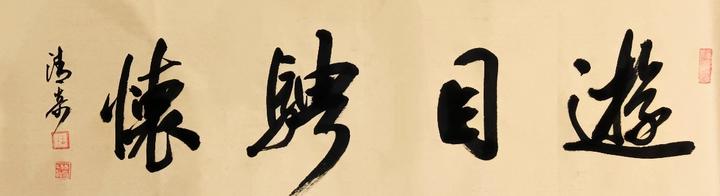 遊目騁懷
清泰